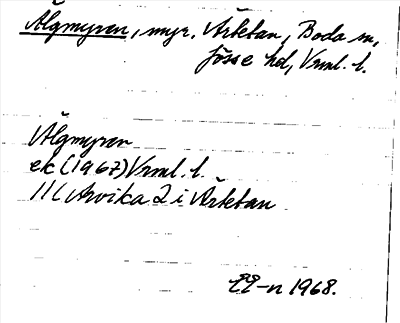 Älgmyren, myr, Ärtetan, Boda sn,
Jösse hd, Vrml. l.
Älgmyren
ek (1967) Vrml. l.
11C Arvika 2 i Ärtetan
1968.